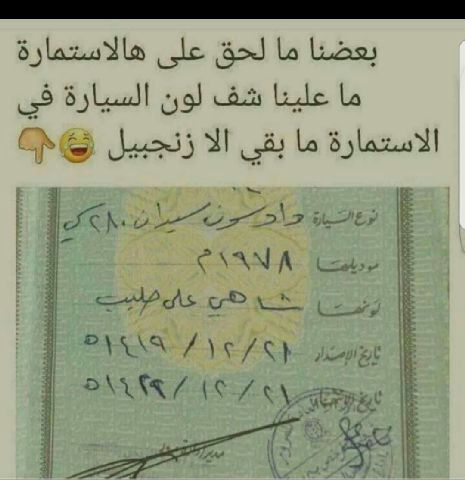 بعضنا ما لحق على هالاستمارة
ما علينا شف لون السيارة في
الاستمارة ما بقي الا زنجبيل 😂👇
نوع السيارة داتسون سيدان ٢٨٠ سي
موديلها ١٩٧٨ م
لونها شاهي على حليب
تاريخ الإصدار ٢١ / ١٢ / ١٤١٩ه
تاريخ ٢١ / ١٢ / ١٤٢٩ه